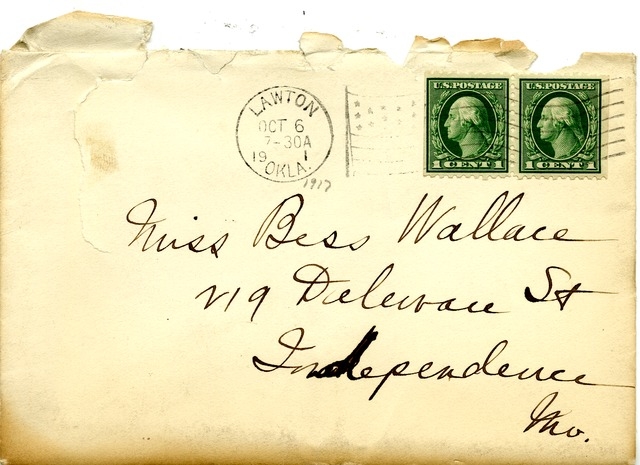 LAWTON
OCT 6
7-30A
19 1
OKLA.
1917
U.S.POSTAGE
1 CENT 1
U.S.POSTAGE
1 CENT 1
Miss Bess Wallace
219 Delaware St
Independence
Mo.